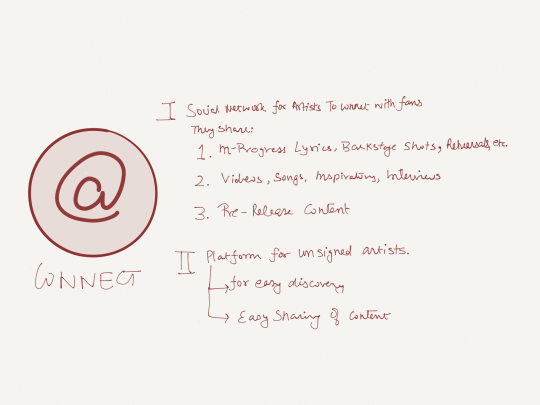 @
CONNECT
I Social Network for Artists To connect with fans
They share:
1. In-Progress Lyrics, Backstage Shots, Rehearsals, etc.
2. Videos, Songs, Inspiratory, Interviews
3. Pre-Release Content
II Platform for unsigned artists.
for easy discovery
Easy Sharing of content